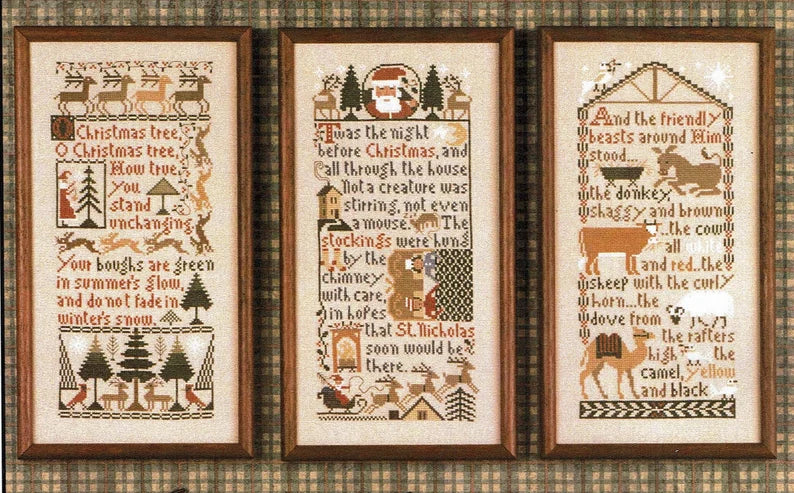 O
Christmas tree,
O Christmas tree,
How true,
you
stand
unchanging.
Your boughs are green
in summer's glow,
and do not fade in
winter's snow.
Twas the night
before Christmas, and
all through the house
Not a creature was
stirring, not even
a mouse. The
stockings were hung
by the
chimney
with care,
in hopes
that St. Nicholas
soon would be
there.
And the friendly
beasts around Him
stood...
the donkey,
shaggy and brown
...the cow
all white
and red...the
sheep with the curly
horn...the
dove from
the rafters
high ... the
camel, yellow
and black